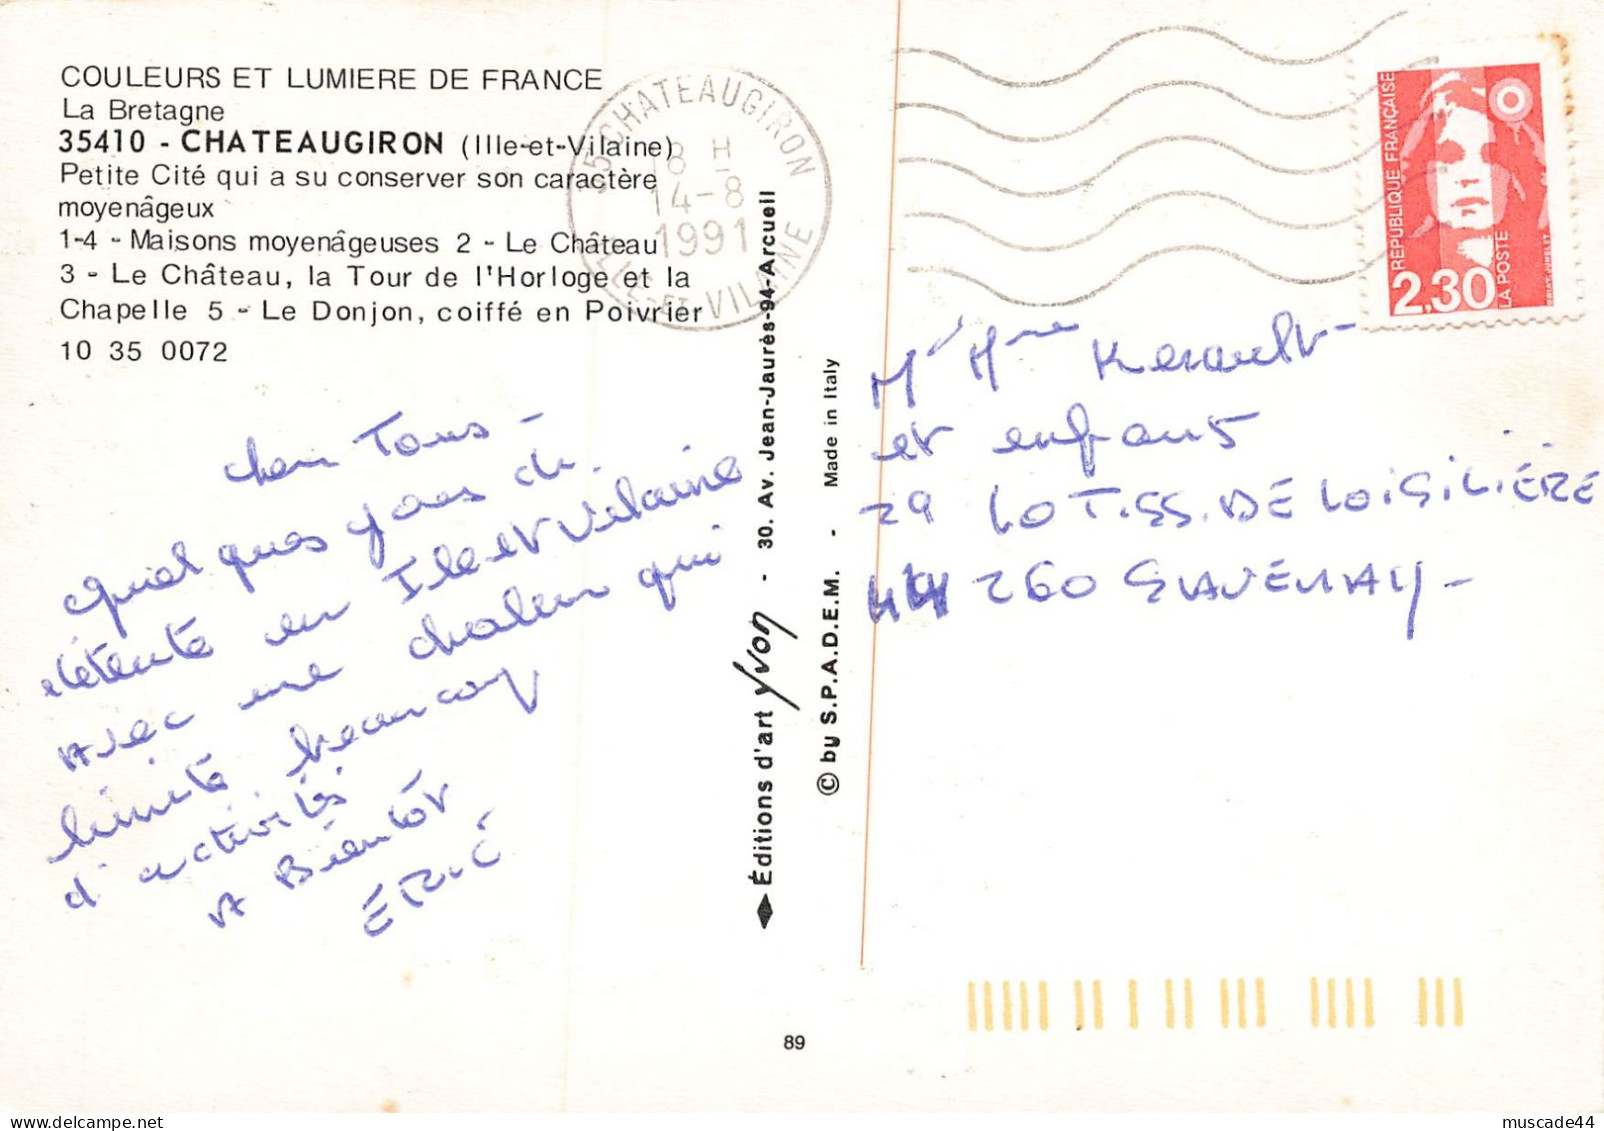 COULEURS ET LUMIERE DE FRANCE
La Bretagne
35410 - CHATEAUGIRON (Ille-et-Vilaine)
Petite Cité qui a su conserver son caractère
moyenâgeux
1-4 - Maisons moyenâgeuses 2 - Le Château
3 - Le Château, la Tour de l'Horloge et la
Chapelle 5 - Le Donjon, coiffé en Poivrier
10 35 0072
35 CHATEAUGIRON
18 H
14-8
1991
ILLE-ET-VILAINE
REPUBLIQUE FRANÇAISE
2,30
LA POSTE
Cher Tous -
Quelques jours de
détente en Ile et Vilaine
avec une chaleur qui
limite beaucoup
d'activités
A Bientôt
ÉRIC
Éditions d'art Yvon - 30. Av. Jean-Jaurès-94-Arcueil
© by S.P.A.D.E.M. - Made in Italy
Mr Mme Kerault -
et enfants
29 LOTISS. DE LOISILIÈRE
44 260 SAVENAY -
89
muscade44